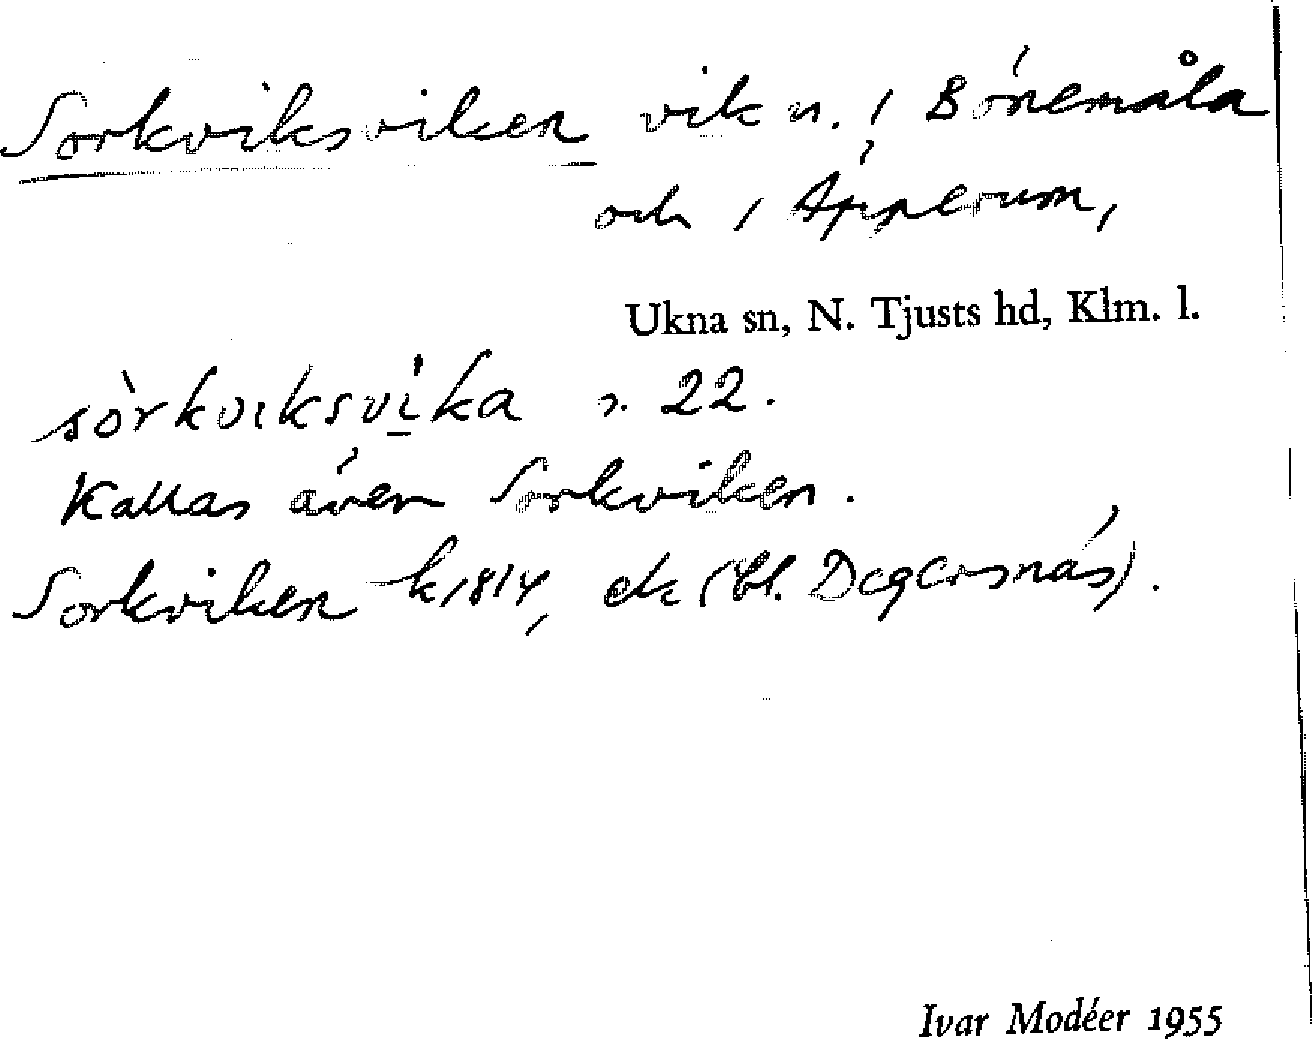 Sorkviksviken vik n. i Bönemåla
och i Äpplerum,
Ukna sn, N. Tjusts hd, Klm. l.
sòrkviksvi̠ka s. 22.
Kallas även Sorkviken.
Sorkviken k 1814, ek (bl. Degersnäs).
Ivar Modéer 1955